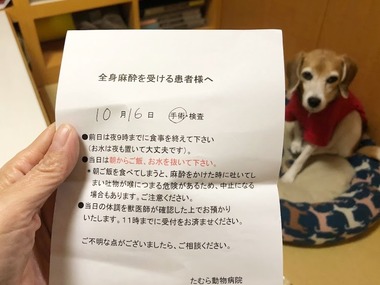 全身麻酔を受ける患者様へ
10月16日 手術・検査
●前日は夜9時までに食事を終えて下さい
(お水は夜も置いて大丈夫です)。
●当日は朝からご飯、お水を抜いて下さい。
*朝ご飯を食べてしまうと、麻酔をかけた時に吐いてし
まい吐物が喉につまる危険があるため、中止になる
場合もあります。ご注意ください。
●当日の体調を獣医師が確認した上でお預かり
いたします。11時までに受付をお済ませください。
ご不明な点がございましたら、ご相談ください。
たむら動物病院